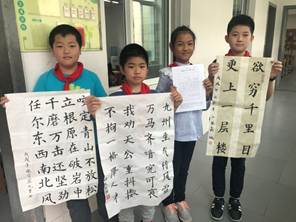 咬定青山不放松
立根原在破岩中
千磨万击还坚劲
任尔东西南北风
九州生气恃风雷
万马齐喑究可哀
我劝天公重抖擞
不拘一格降人才
欲穷千里目
更上一层楼